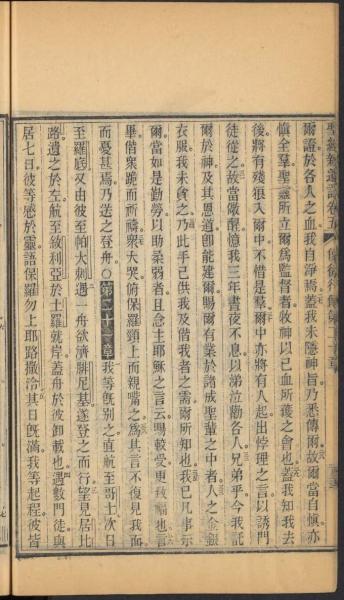 爾證於各人之血我自淨焉蓋我未隱神旨乃悉傳爾故爾當自愼亦
愼全羣聖靈所立爾爲監督者牧神以己血所獲之會也蓋我知我去
後將有殘狼入爾中不惜是羣爾中亦將有人起出悖理之言以誘門
徒從之故當儆醒憶我三年晝夜不息以涕泣勸各人兄弟乎今我託
爾於神及其恩道卽能建爾賜爾有業於諸成聖輩之中者人之金銀
衣服我未貪之乃此手己供我及偕我者之需爾所知也我已凡事示
爾當如是勤勞以助柔弱者且念主耶穌之言云賜較受更致福也言
畢偕衆跪而祈禱衆大哭俯保羅頸上而親嘴之爲其言不復見我面
而憂甚焉乃送之登舟〇第二十一章我等旣別之直航至哥士次日
至羅底又由彼至帕大喇遇一舟欲濟腓尼基遂登之而行望見居比
路遺之於左航至敘利亞於士羅就岸蓋舟於彼卸載也遇數門徒與
居七日彼等感於靈語保羅勿上耶路撒冷其日旣滿我等起程彼皆